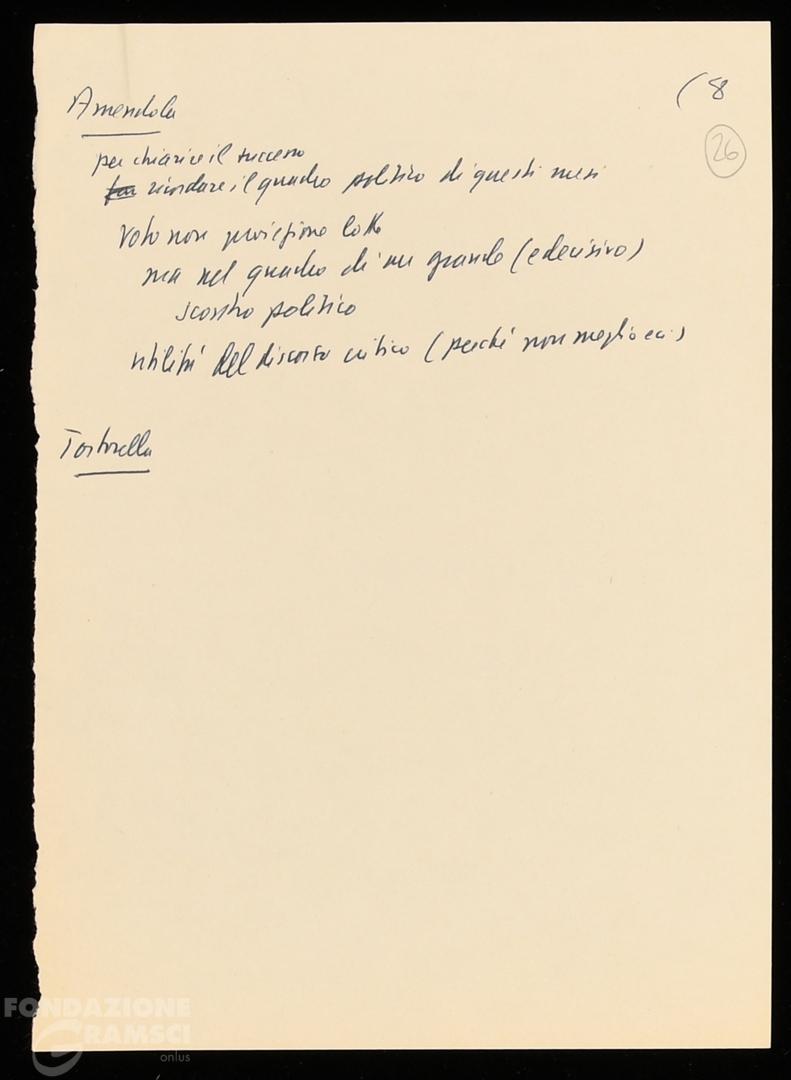 (8
26
Amendola
per chiarire il successo
ricordare il quadro politico di questi mesi
Voto non proiezione lotte
ma nel quadro di un grande (e decisivo)
scontro politico
utilità del discorso critico (perché non meglio ecc)
Tortorella
FONDAZIONE
GRAMSCI
onlus